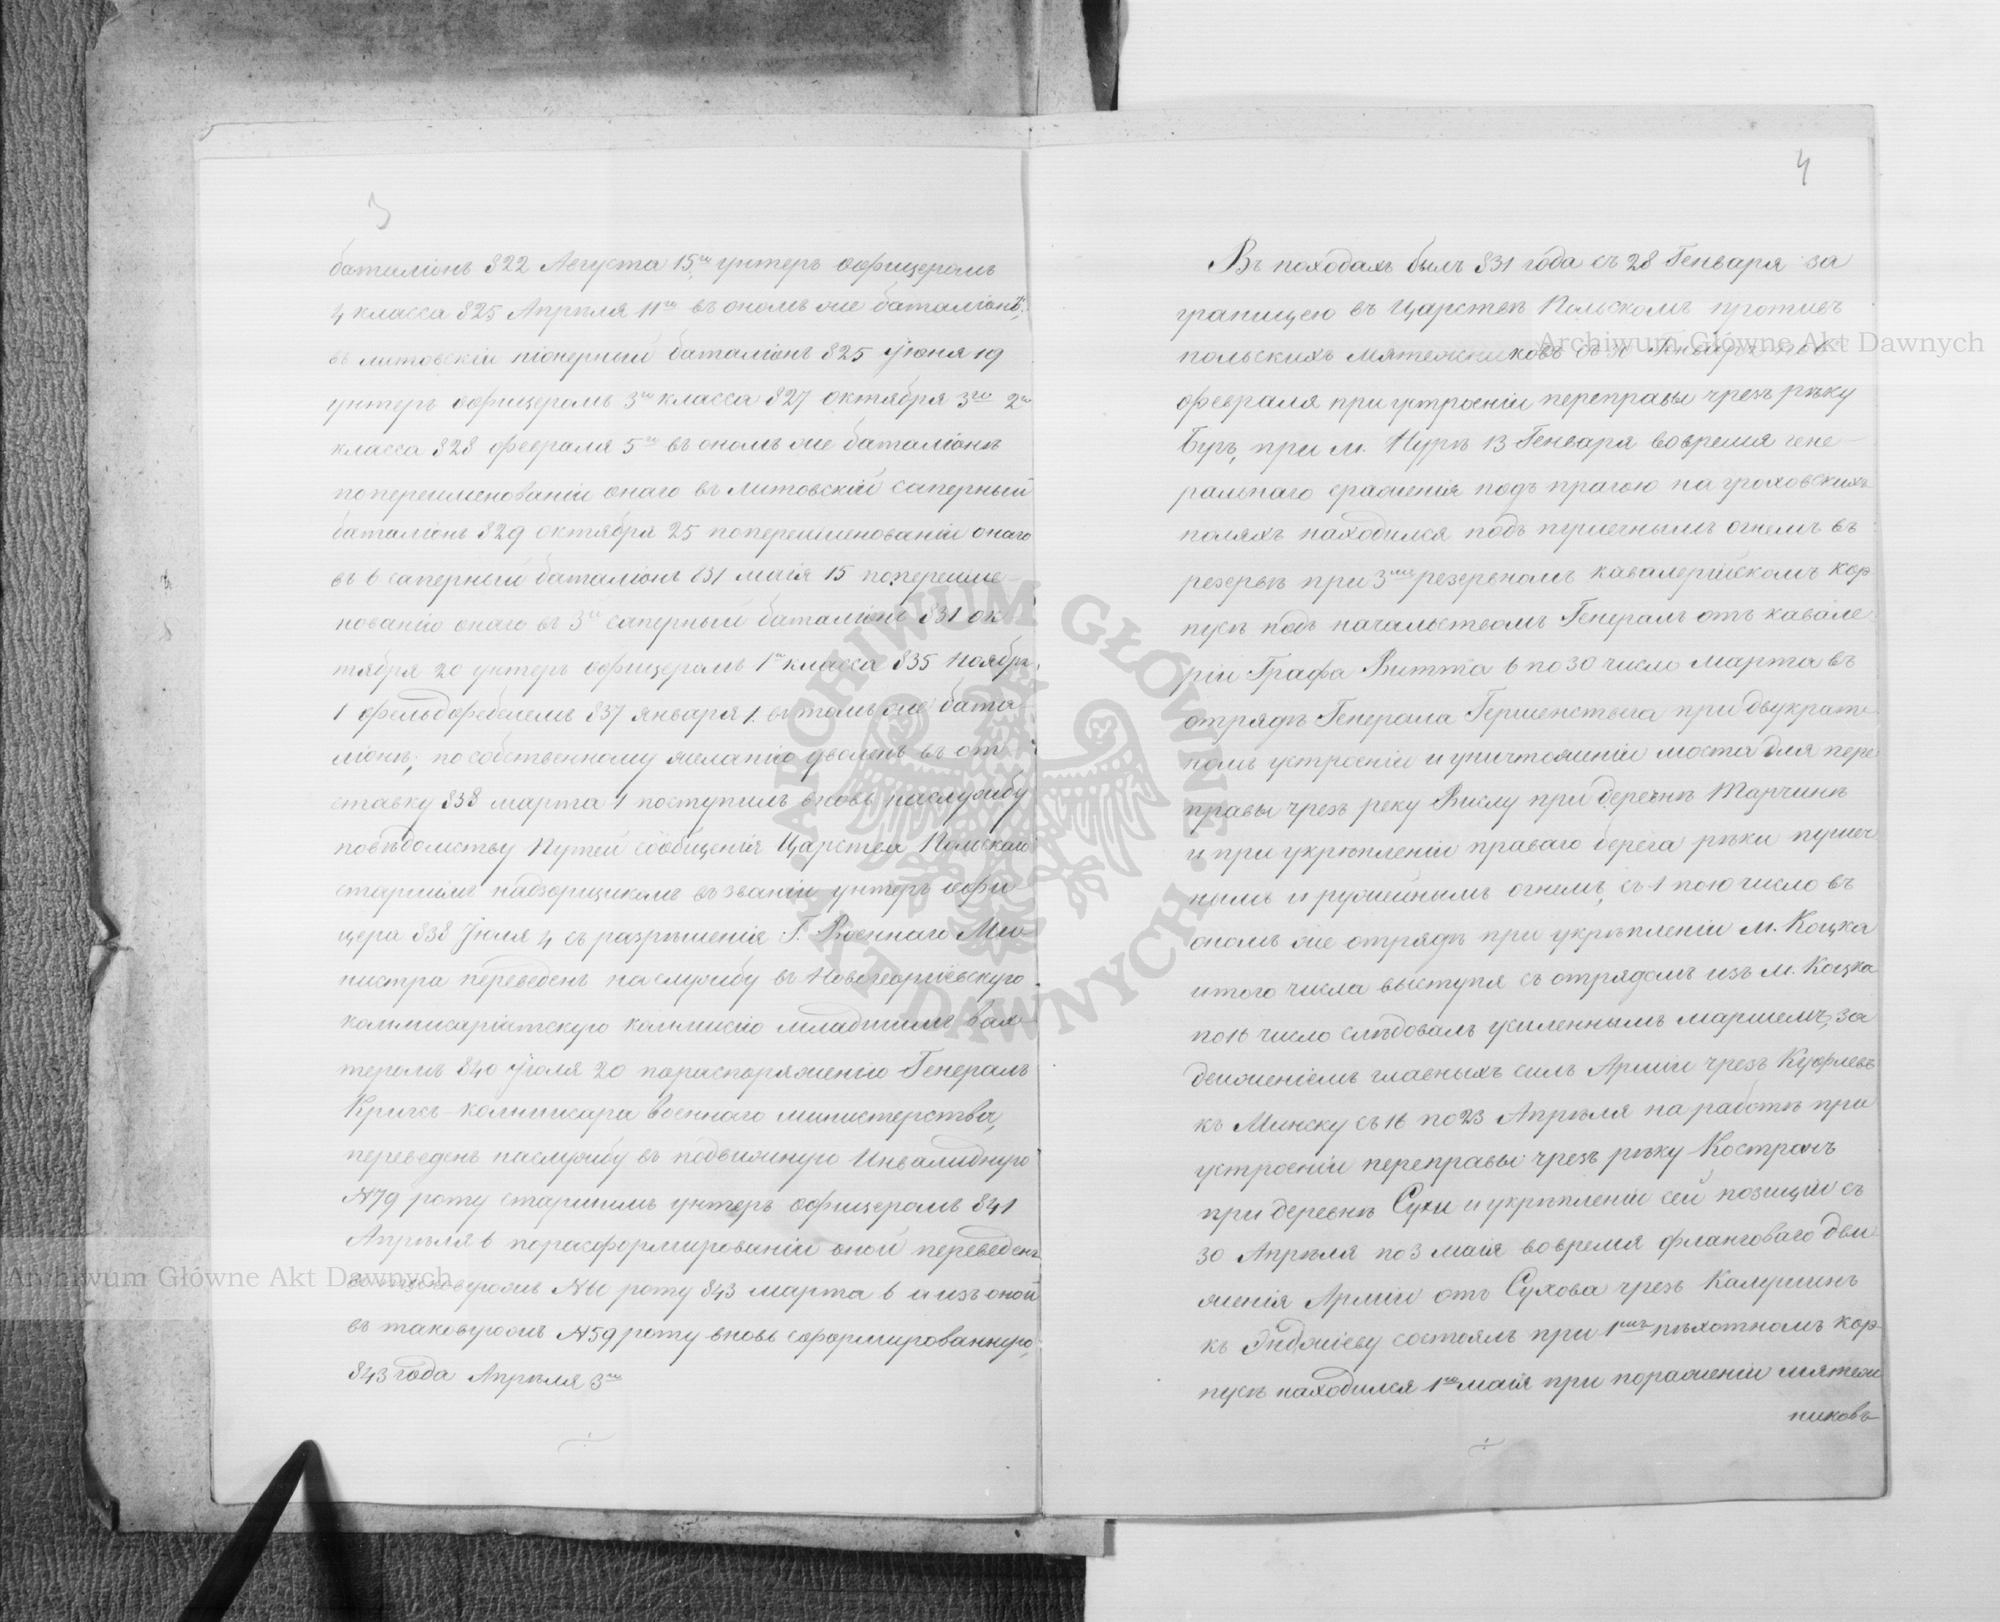 3
баталіонъ 822 Августа 15го унтеръ офицеромъ
4 класса 825 Апрѣля 11го въ ономъ же баталіонѣ,
въ литовскій піонерный баталіонъ 825 Іюня 19
унтеръ офицеромъ 3го класса 827 октября 3го 2го
класса 828 февраля 5го въ ономъ же баталіонѣ
попереименованіи онаго въ Литовскій саперный
баталіонъ 829 октября 25 попереименованіи онаго
въ 6 саперный баталіонъ 831 маія 15 попереиме-
нованію онаго въ 3й саперный баталіонъ 831 ок-
тября 20 унтеръ офицеромъ 1го класса 835 Ноября
1 фельдфебелемъ 837 января 1. въ томъ же бата-
ліонѣ, по собственному желанію уволенъ въ от-
ставку 838 марта 1 поступилъ вновь наслужбу
повѣдомству Путей сообщенія Царства Польскаго
старшимъ надзорщикомъ въ званіи унтеръ офи-
цера 838 Іюля 4 съ разрѣшенія Г. Военнаго Ми-
нистра переведенъ наслужбу въ Новогеоргіевскую
коммисаріатскую коммисію младшимъ вах-
теромъ 840 Іюля 20 пораспоряженію Генералъ
Кригсъ-коммисара военнаго министерства,
переведенъ наслужбу въ подвижную Инвалидную
№79 роту старшимъ унтеръ офицеромъ 841
Апрѣля 6 порасформированіи оной переведенъ
въ таковуюжъ №60 роту 843 марта 6 и изъ оной
въ таковуюжъ №59 роту вновь сформированную,
843 года Апрѣля 3го
4
Въ походахъ былъ 831 года съ 28 Генваря за
границею въ Царствѣ Польскомъ противъ
польскихъ мятежниковъ съ 30 Генваря по 6
февраля при устроеніи переправы чрезъ рѣку
Бугъ, при м. Нурѣ 13 Генваря вовремя гене-
ральнаго сраженія подъ прагою на гроховскихъ
поляхъ находился подъ пушечнымъ огнемъ въ
резервѣ при 3мъ резервномъ кавалерійскомъ кор-
пусѣ подъ начальствомъ Генерала отъ кавале-
ріи Графа Витта 6 по 30 число марта въ
отрядѣ Генерала Гершенсвега при двукрат-
номъ устроеніи и уничтоженіи моста для пере
правы чрезъ реку Вислу при деревнѣ Тарчинѣ
и при укрѣпленіи праваго берега рѣки пушеч
нымъ и ружейнымъ огнемъ, съ 1 по 10 число въ
ономъ же отрядѣ при укрѣпленіи м. Коцка
итого числа выступя съ отрядомъ изъ м. Коцка
по 16 число слѣдовалъ усиленнымъ маршемъ, за
движеніемъ главныхъ силъ Арміи чрезъ Куфлевъ
къ Минску съ 16 по 23 Апрѣля на работѣ при
устроеніи переправы чрезъ рѣку Костромъ
при деревнѣ Сухи и укрѣпленіи сей позиціи съ
30 Апрѣля по 3 маія вовремя фланговаго дви
женія Арміи отъ Сухова чрезъ Калушинъ
къ Энджіеву состоялъ при 1мъ пѣхотномъ кор-
пусѣ находился 1го маія при пораженіи мятеж
никовъ
Archiwum Główne Akt Dawnych
Archiwum Główne Akt Dawnych
ARCHIWUM GŁÓWNE AKT DAWNYCH